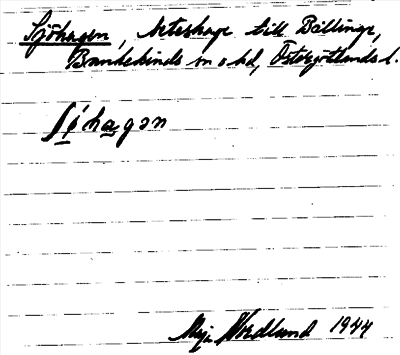 Sjöhagen, beteshage till Bällinge,
Bankekinds sn o hd, Östergötlands l.
ʃö́hagən
Maj Nordlund 1944